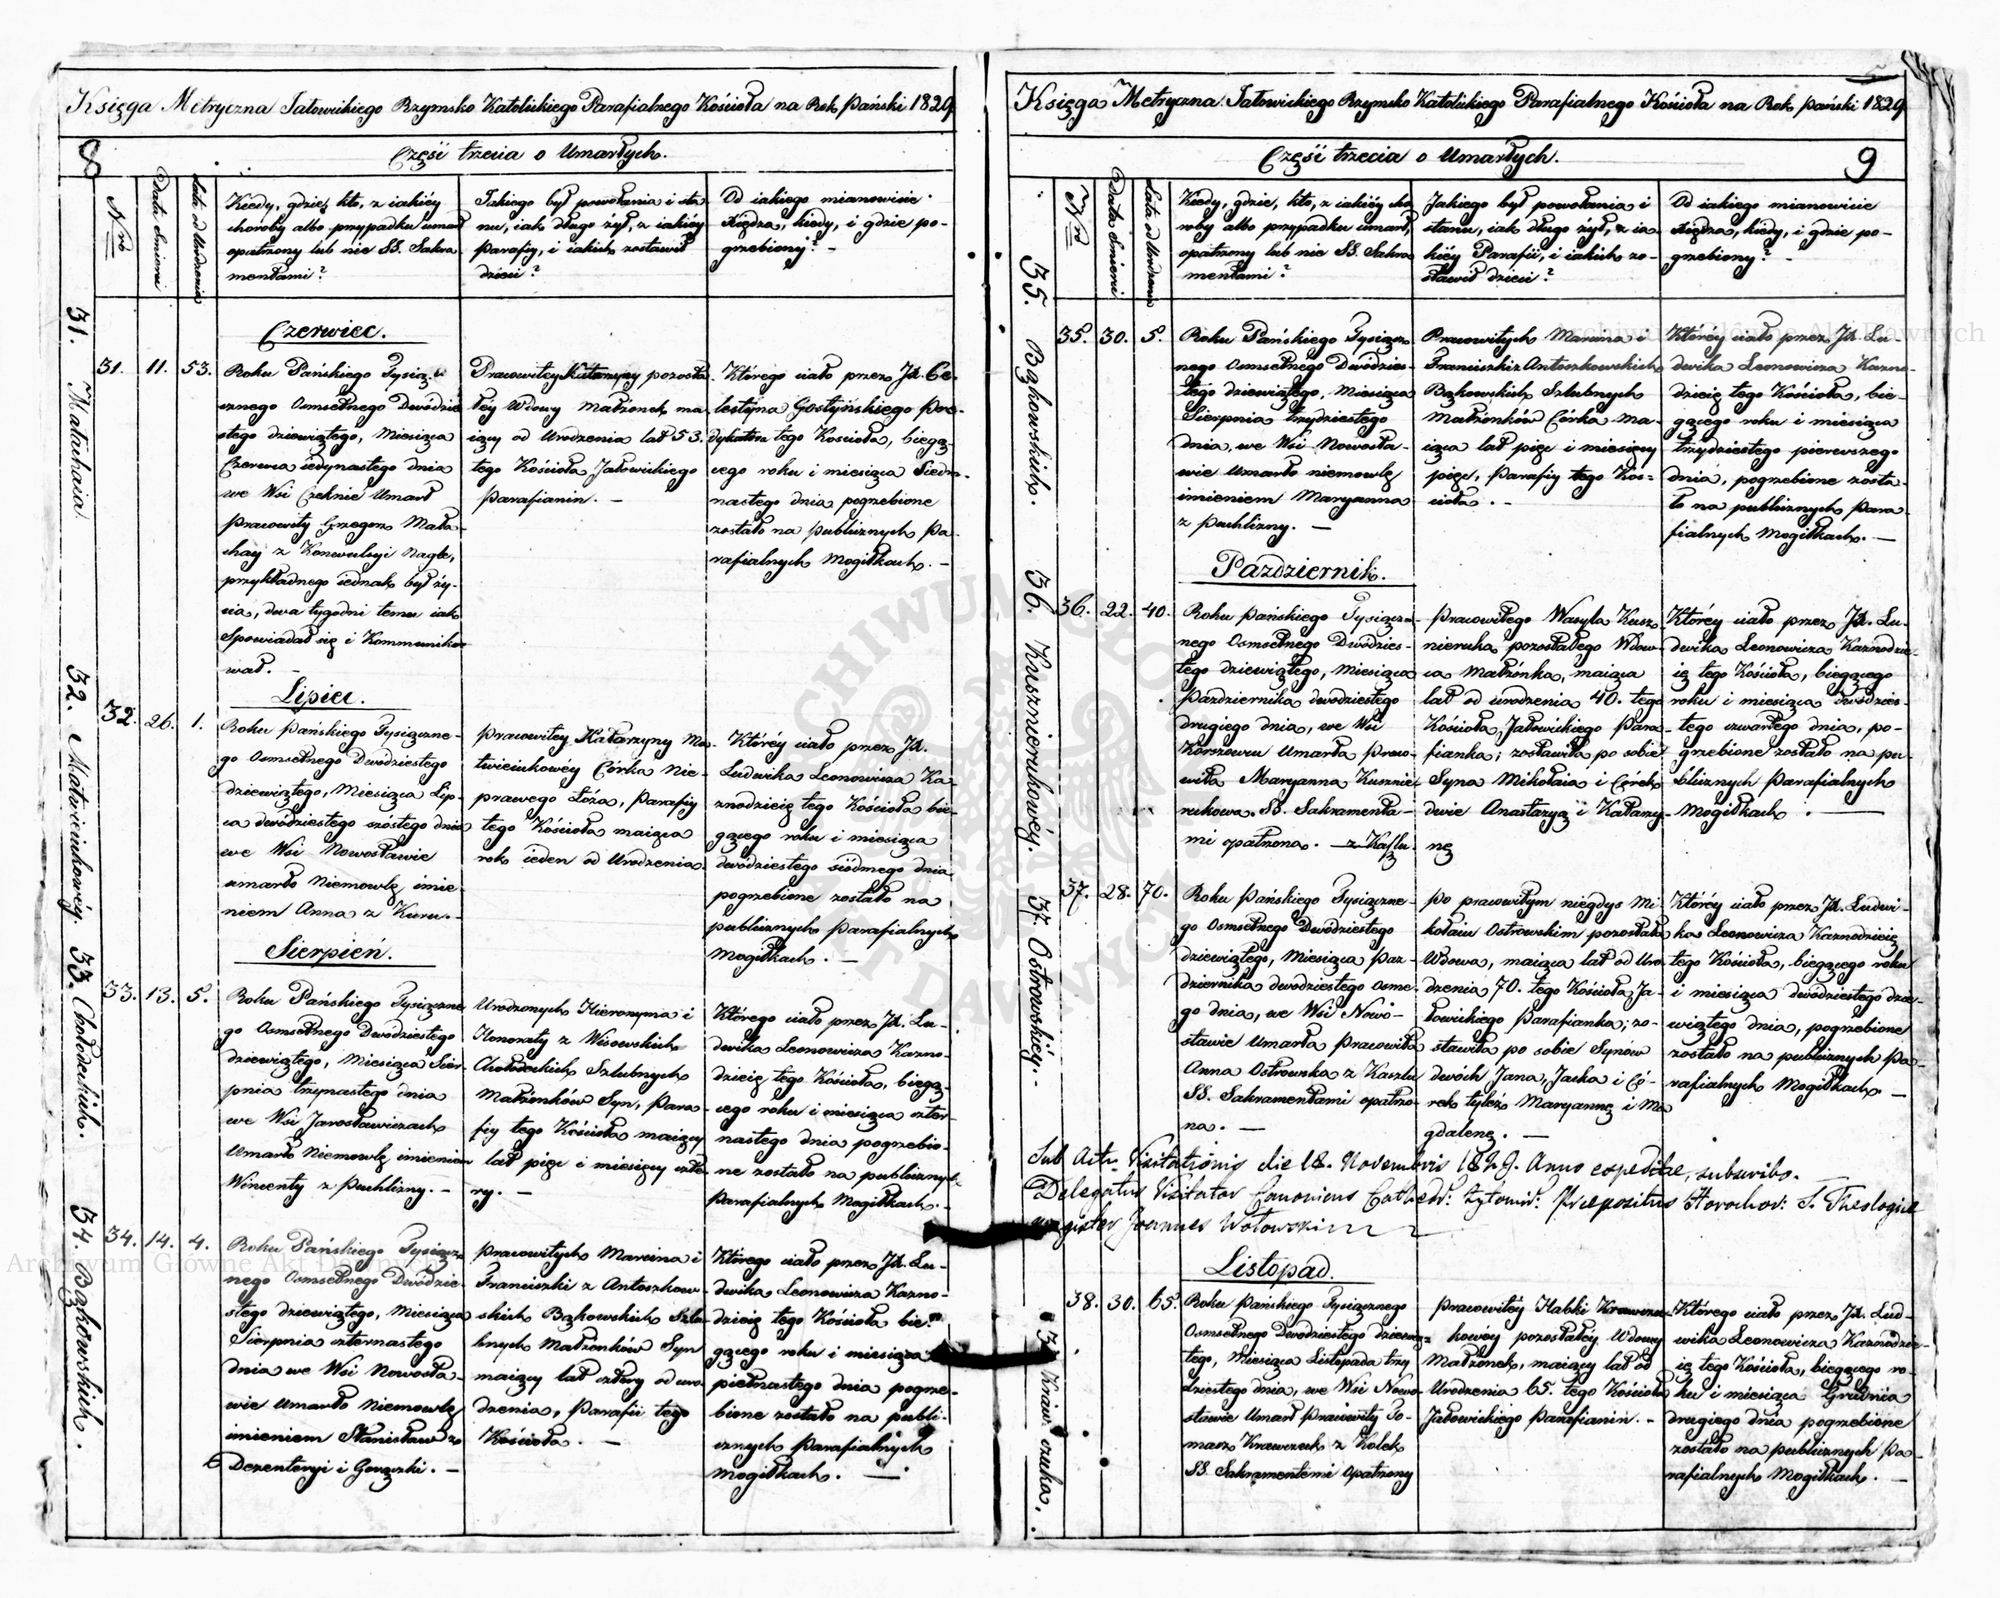 Księga Metryczna Jałowickiego Rzymsko Katolickiego Parafialnego Kościoła na Rok Pański 1829
8
Część trzecia o Umarłych.
Nro
Data Śmierci
Lata od Urodzenia
Kiedy, gdzie, kto, z iakiéy
choroby albo przypadku umarł
opatrzony lub nie SS. Sakra
mentami?
Jakiego był powołania i sta
nu, iak długo żył, z iakiéy
Parafiy, i iakich zostawił
dzieci?
Od iakiego mianowicie
Xiędza, kiedy, i gdzie po-
grzebiony? -
Czerwiec.
31. Małachaia
31. 11. 53.
Roku Pańskiego Tysiąc
cznego Osmsetnego Dwódzie
stego dziewiątego, Miesiąca
Czerwca iedynastego dnia
we Wsi Czeknie Umarł
Pracowity Grzegorz Mała-
chay z Konwulsyi nagle,
przykładnego iednak był ży-
cia, dwa tygodni temu iak
Spowiadał się i Kommuniko
wał. -
Pracowitey Katarzyny pozosta
łéy Wdowy Małżonek ma
iący od Urodzenia lat 53.
tego Kościoła Jałowickiego
Parafianin. -
Którego ciało przez Jx. Ce-
lestyna Gostyńskiego Pre-
dykatora tego Kościoła, biegą-
cego roku i miesiąca Siedm-
nastego dnia pogrzebione
zostało na publicznych Pa-
rafialnych Mogiłkach. -
Lipiec.
32. Matwieiukowéy.
32. 26. 1.
Roku Pańskiego Tysiączne-
go Osmsetnego Dwódziestego
dziewiątego, Miesiąca Lip-
ca dwódziestego szóstego dnia
we Wsi Nowostawie
umarło Niemowlę imie-
niem Anna z Kuru. -
Pracowitey Katarzyny Ma-
twieiukowéy Córka Nie-
prawego Łóża, Parafiy
tego Kościoła maiąca
rok ieden od Urodzenia.
Któréy ciało przez Jx.
Ludwika Leonowicza Ka-
znodzieię tego Kościoła bie-
gącego roku i miesiąca
dwódziestego siódmego dnia
pogrzebione zostało na
publicznych Parafialnych
Mogiłkach. -
Sierpień.
33. Chołodeckich.
33. 13. 5.
Roku Pańskiego Tysiączne
go Osmsetnego Dwódziestego
dziewiątego, Miesiąca Sier-
pnia trzynastego dnia
we Wsi Jarosławiczach
Umarło Niemowlę imieniem
Wincenty z Puchliny. -
Urodzonych Hieronyma i
Honoraty z Wisowskich
Chołodeckich Szlubnych
Małżonków Syn, Para-
fiy tego Kościoła maiący
lat pięć i miesięcy czte
ry. -
Którego ciało przez Jx. Lu-
dwika Leonowicza Kazno-
dzieię tego Kościoła, biegą-
cego roku i miesiąca czter-
nastego dnia pogrzebio-
ne zostało na publicznych
Parafialnych Mogiłkach. -
34. Bąkowskich.
34. 14. 4.
Roku Pańskiego Tysiącz
nego Osmsetnego Dwódzie-
stego dziewiątego, Miesiąca
Sierpnia czternastego
dnia we Wsi Nowosta-
wie Umarło Niemowlę
imieniem Stanisław z
Dezenteryi i Gorączki. -
Pracowitych Marcina i
Franciszki z Antoszkow-
skich Bąkowskich Szlu-
bnych Małżonków Syn
maiący lat cztery od uro
dzenia, Parafii tego
Kościoła. -
Którego ciało przez Jx. Lu-
dwika Leonowicza Kazno-
dzieię tego Kościoła bie-
gącego roku i miesiąca
piętnastego dnia pogrze-
bione zostało na publi-
cznych Parafialnych
mogiłkach. -
Księga Metryczna Jałowickiego Rzymsko Katolickiego Parafialnego Kościoła na Rok Pański 1829
Część trzecia o Umarłych.
9
Nro
Data Śmierci
Lata od Urodzenia
Kiedy, gdzie, kto, z iakiéy cho
roby albo przypadku umarł,
opatrzony lub nie SS. Sakra
mentami?
Jakiego był powołania i
stanu, iak długo żył, z ia-
kiéy Parafii, i iakich zo-
stawił dzieci?
Od iakiego mianowicie
Xiędza, kiedy, i gdzie po-
grzebiony? -
35. Bąkowskich.
35. 30. 5.
Roku Pańskiego Tysiącz
nego Osmsetnego Dwódzies-
tego dziewiątego, Miesiąca
Sierpnia trzydziestego
dnia, we Wsi Nowosta-
wie Umarło niemowlę
imieniem Maryanna
z Puchliny. -
Pracowitych Marcina i
Franciszki z Antoszkowskich
Bąkowskich Szlubnych
Małżonków Córka ma-
iąca lat pięć i miesięcy
pięć, Parafiy tego Koś-
cioła. -
Któréy ciało przez Jx. Lu-
dwika Leonowicza Kazno-
dzieię tego Kościoła, bie-
gącego roku i miesiąca
trzydziestego pierwszego
dnia, pogrzebione zosta-
ło na publicznych Para
fialnych Mogiłkach. -
Pazdziernik.
36. Kuszniorukowéy.
36. 22. 40.
Roku Pańskiego Tysiącz-
nego Osmsetnego Dwódzies-
tego dziewiątego, Miesiąca
Pazdziernika dwódziestego
drugiego dnia, we Wsi
Umarła Praco-
wita Maryanna Kusznie-
rukowa SS. Sakramenta-
mi opatrzona. - z Kaszlu
Pracowitego Wasyla Kusz-
nieruka pozostałego Wdow-
ca Małżonka, maiąca
lat od urodzenia 40. tego
Kościoła, Jałowickiego Para-
fianka; zostawiła po sobie
Syna Mikołaia i Córek
dwie Anastazyą i Katarzy-
nę
Któréy ciało przez Jx. Lu-
dwika Leonowicza Kaznodzie-
ię tego Kościoła, biegącego
roku i miesiąca dwódzies-
tego czwartego dnia, po-
grzebione zostało na pu-
blicznych Parafialnych
Mogiłkach. -
37. Ostrowskiéy.
37. 28. 70.
Roku Pańskiego Tysiączne-
go Osmsetnego Dwódziestego
dziewiątego, Miesiąca Paz-
dziernika dwódziestego osme-
go dnia, we Wsi Nowo-
stawie Umarła Pracowita
Anna Ostrowska z Kaszlu
SS. Sakramentami opatrzo-
na. -
Po pracowitym niegdyś Mi-
kołaiu Ostrowskim pozostała
Wdowa, maiąca lat od Uro
dzenia 70. tego Kościoła, Ja-
łowickiego Parafianka; zo-
stawiła po sobie Synów
dwóch Jana, Jacka i Có-
rek tyleż Maryannę i Ma
gdalenę. -
Któréy ciało przez Jx. Ludwi-
ka Leonowicza Kaznodzieię
tego Kościoła, biegącego roku
i miesiąca dwódziestego dzie-
wiątego dnia, pogrzebione
zostało na publicznych Pa-
rafialnych Mogiłkach. -
Sub Actu Visitationis die 18. Novembris 1829. Anno expeditae, subscribo.
Delegatus Visitator Canonicus Cathedr: Żytomir: Praepositus Horochov: S. Theologiae
Magister Joannes Wołowski
Listopad.
Krawczuka.
38. 30. 65.
Roku Pańskiego Tysiącznego
Osmsetnego Dwódziestego dziewią-
tego, Miesiąca Listopada trzy
dziestego dnia, we Wsi Nowo-
stawie Umarł Pracowity To-
masz Krawczuk z Kolek
SS. Sakramentemi Opatrzony
Pracowitéy Habki Krawczu-
kowéy pozostałéy Wdowy
Małżonek, maiący lat od
Urodzenia 65. tego Kościoła
Jałowickiego Parafianin. -
Którego ciało przez Jx. Lud-
wika Leonowicza Kaznodzie-
ię tego Kościoła, biegącego ro-
ku i miesiąca Grudnia
drugiego dnia pogrzebione
zostało na publicznych Pa-
rafialnych Mogiłkach. -
Archiwum Główne Akt Dawnych